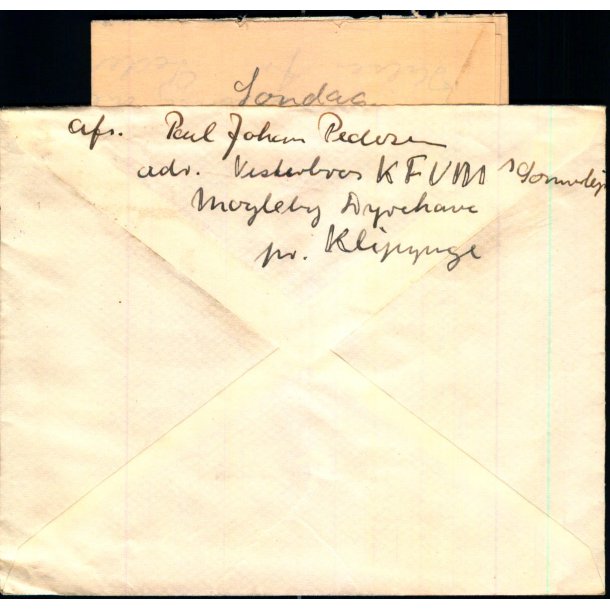 Søndag
afs. Poul Johan Pedersen
adr. Vesterbros KFUM's Sommerlejr
Magleby Dyrehave
pr. Klippinge